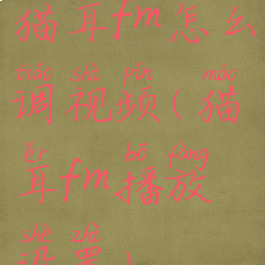 猫耳fm怎么
tiáo shì pín māo
调视频(猫
ěr bō fàng
耳fm播放
shè zhì
设置)